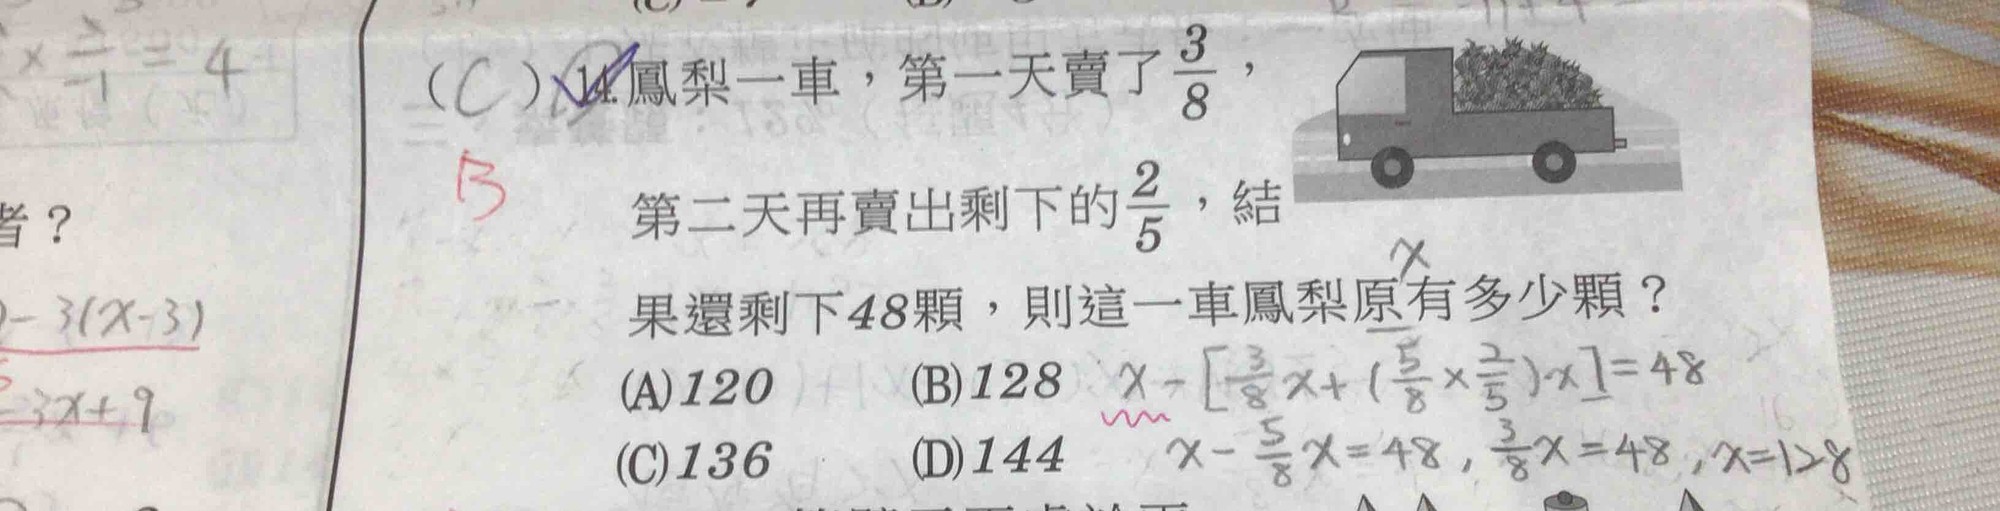 = 4
(C) 14. 鳳梨一車，第一天賣了 3/8，
B
第二天再賣出剩下的 2/5，結
者？
x
果還剩下48顆，則這一車鳳梨原有多少顆？
- 3(x-3)
(A)120 (B)128 x - [3/8x + (5/8 × 2/5)x] = 48
3x + 9
(C)136 (D)144 x - 5/8x = 48, 3/8x = 48, x = 128